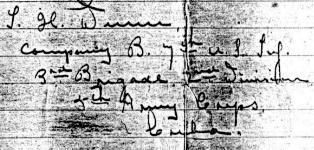 S. H. Dunn,
Company B. 7th U.S. Inf.
3rd Brigade, 2nd Division
5th Army Corps,
Cuba.